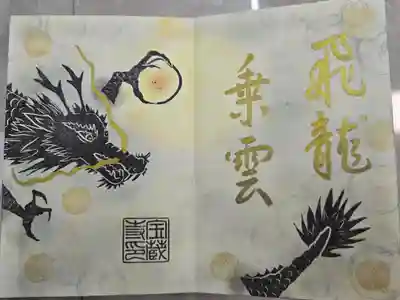 飛龍
乗雲
宝蔵
寺印